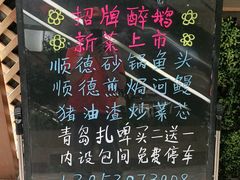 招牌醉鹅
新菜上市
顺德砂锅鱼头
顺德煎焗河鳗
猪油渣炒菜芯
青岛扎啤买二送一
内设包间免费停车